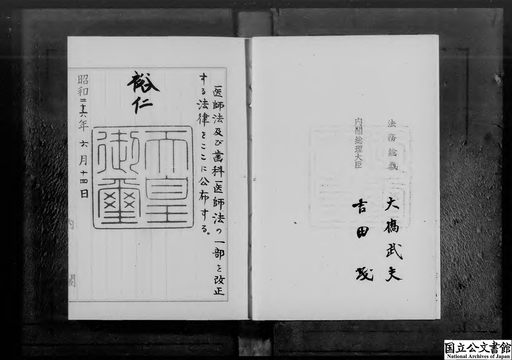 医師法及び歯科医師法の一部を改正
する法律をここに公布する。
裕仁
天皇
御璽
昭和二十六年 六月 十四日
内閣
法務総裁 大橋武夫
内閣総理大臣 吉田茂
国立公文書館
National Archives of Japan